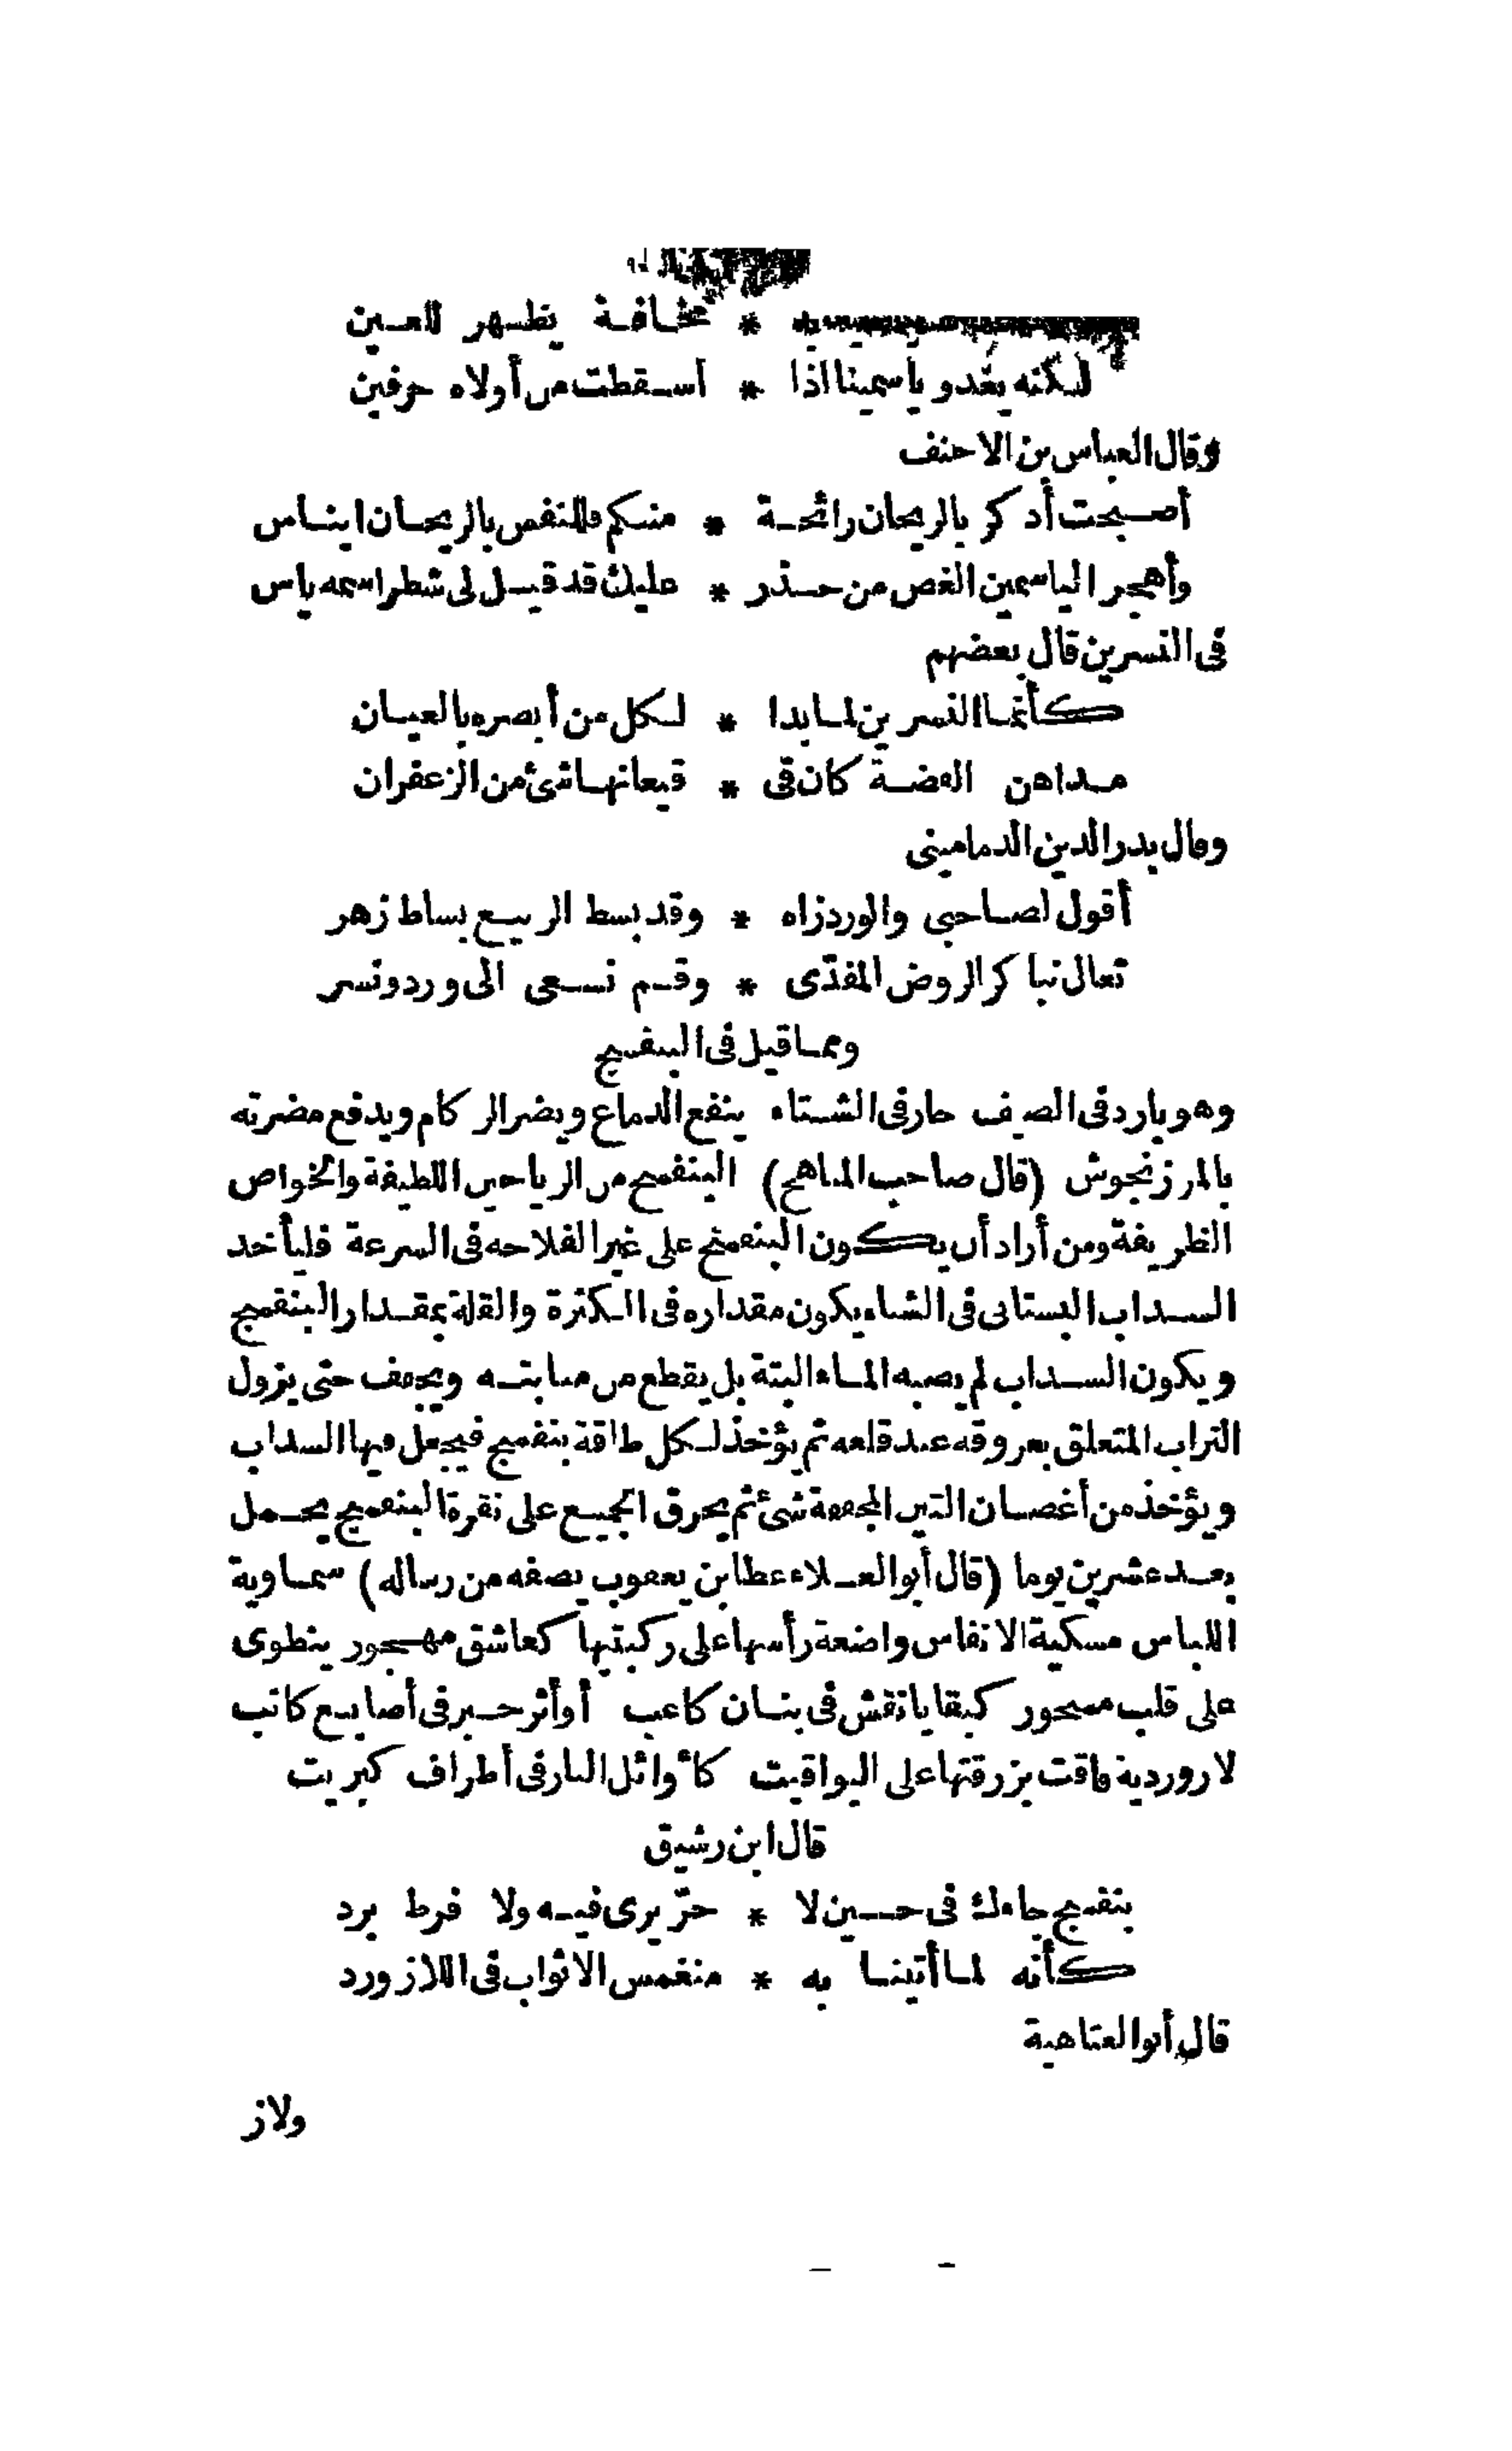 * مخافة يظهر للعين
لكنه يغدو ياسمينا اذا * أسقطت من أولاه حرفين
وقال العباس بن الاحنف
أصبحت أذكر بالريحان رائحة * منكم فللنفس بالريحان ايناس
وأهجر الياسمين الغض من حذر * عليك قد قيل لى شطر اسمه ياس
فى النسرين قال بعضهم
كأنما النسرين لما بدا * لكل من أبصره بالعيان
مداهن الفضة كان فى * قيعانها شئ من الزعفران
وقال بدر الدين الدمامينى
أقول لصاحبى والورد زاه * وقد بسط الربيع بساط زهر
تعال نباكر الروض المفدّى * وقم نسعى الى ورد ونسر
ومما قيل فى البنفسج
وهو بارد فى الصيف حار فى الشتاء ينفع الدماغ ويضر الزكام ويدفع مضرته
بالمرزنجوش (قال صاحب المناهج) البنفسج من الرياحين اللطيفة والخواص
الظريفة ومن أراد أن يكون البنفسج على غير الفلاحه فى السرعة فليأخذ
السداب البستانى فى الشتاء يكون مقداره فى الكثرة والقلة بمقدار البنفسج
ويكون السداب لم يصبه الماء البتة بل يقطع من منابته ويجفف حتى يزول
التراب المتعلق بعروقه عند قلعه ثم يؤخذ لكل طاقة بنفسج فيجعل فيها السداب
ويؤخذ من أغصان التين المجففة شئ ثم يحرق الجميع على نقرة البنفسج يحمل
بعد عشرين يوما (قال أبو العلاء عطا بن يعقوب يصفه من رساله) سماوية
اللباس مسكية الانفاس واضعة رأسها على ركبتيها كعاشق مهجور ينطوى
على قلب مسجور كبقايا نقش فى بنان كاعب أو أثر حبر فى أصابع كاتب
لازوردية فاقت بزرقتها على اليواقيت كأوائل النار فى أطراف كبريت
قال ابن رشيق
بنفسج جاءك فى حين لا * حرّ يرى فيه ولا فرط برد
كأنه لما أتينا به * منغمس الاثواب فى اللازورد
قال أبو العتاهية
ولاز